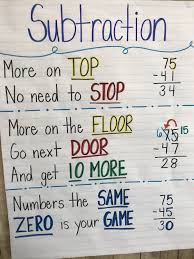 Subtraction
More on TOP 75
No need to STOP -41
34
More on the FLOOR 6 75 15
Go next DOOR -47
And get 10 MORE 28
Numbers the SAME 75
ZERO is your GAME -45
30